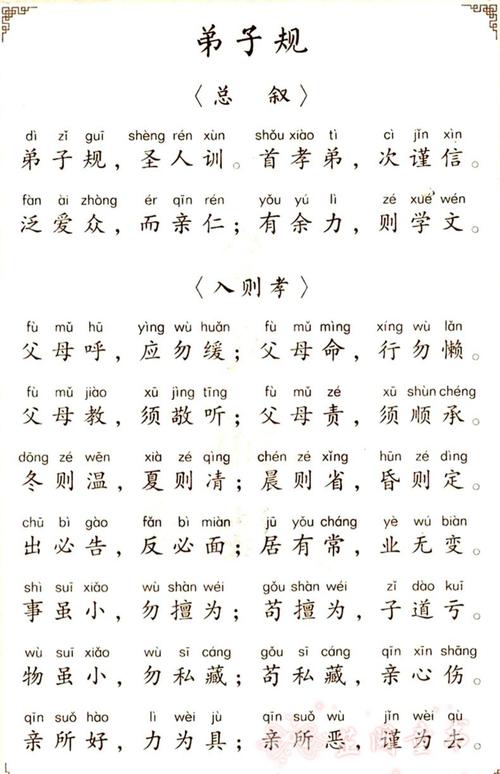 弟子规
〈总 叙〉
dì zǐ guī shèng rén xùn shǒu xiào tì cì jǐn xìn
弟子规，圣人训。首孝弟，次谨信。
fàn ài zhòng ér qīn rén yǒu yú lì zé xué wén
泛爱众，而亲仁；有余力，则学文。
〈入则孝〉
fù mǔ hū yìng wù huǎn fù mǔ mìng xíng wù lǎn
父母呼，应勿缓；父母命，行勿懒。
fù mǔ jiào xū jìng tīng fù mǔ zé xū shùn chéng
父母教，须敬听；父母责，须顺承。
dōng zé wēn xià zé qìng chén zé xǐng hūn zé dìng
冬则温，夏则凊；晨则省，昏则定。
chū bì gào fǎn bì miàn jū yǒu cháng yè wú biàn
出必告，反必面；居有常，业无变。
shì suī xiǎo wù shàn wéi gǒu shàn wéi zǐ dào kuī
事虽小，勿擅为；苟擅为，子道亏。
wù suī xiǎo wù sī cáng gǒu sī cáng qīn xīn shāng
物虽小，勿私藏；苟私藏，亲心伤。
qīn suǒ hào lì wèi jù qīn suǒ wù jǐn wèi qù
亲所好，力为具；亲所恶，谨为去。